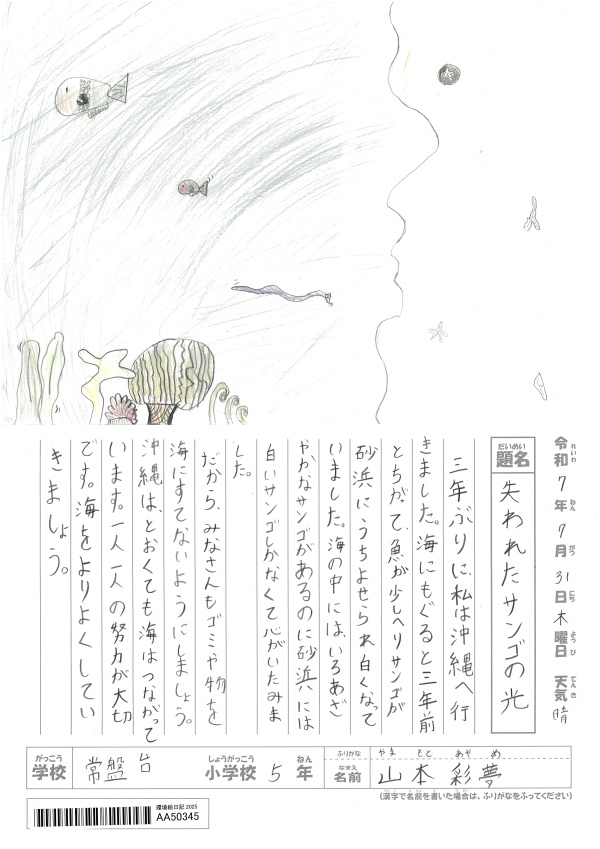 令和7年7月31日木曜日 天気 晴
れいわ ねん がつ にち ようび てんき
だいめい
題名 失われたサンゴの光
三年ぶりに、私は沖縄へ行
きました。海にもぐると三年前
とちがって、魚が少しへりサンゴが
砂浜にうちよせられ白くなって
いました。海の中には、いろあざ
やかなサンゴがあるのに砂浜には
白いサンゴしかなくて心がいたみま
した。
だから、みなさんもゴミや物を
海にすてないようにしましょう。
沖縄は、とおくても海はつながって
います。一人一人の努力が大切
です。海をよりよくしてい
きましょう。
がっこう しょうがっこう ねん ふりがな やま もと あや め
学校 常盤台 小学校 5年 なまえ 名前 山本彩夢
(漢字で名前を書いた場合は、ふりがなをふってください)
環境絵日記2025
AA50345